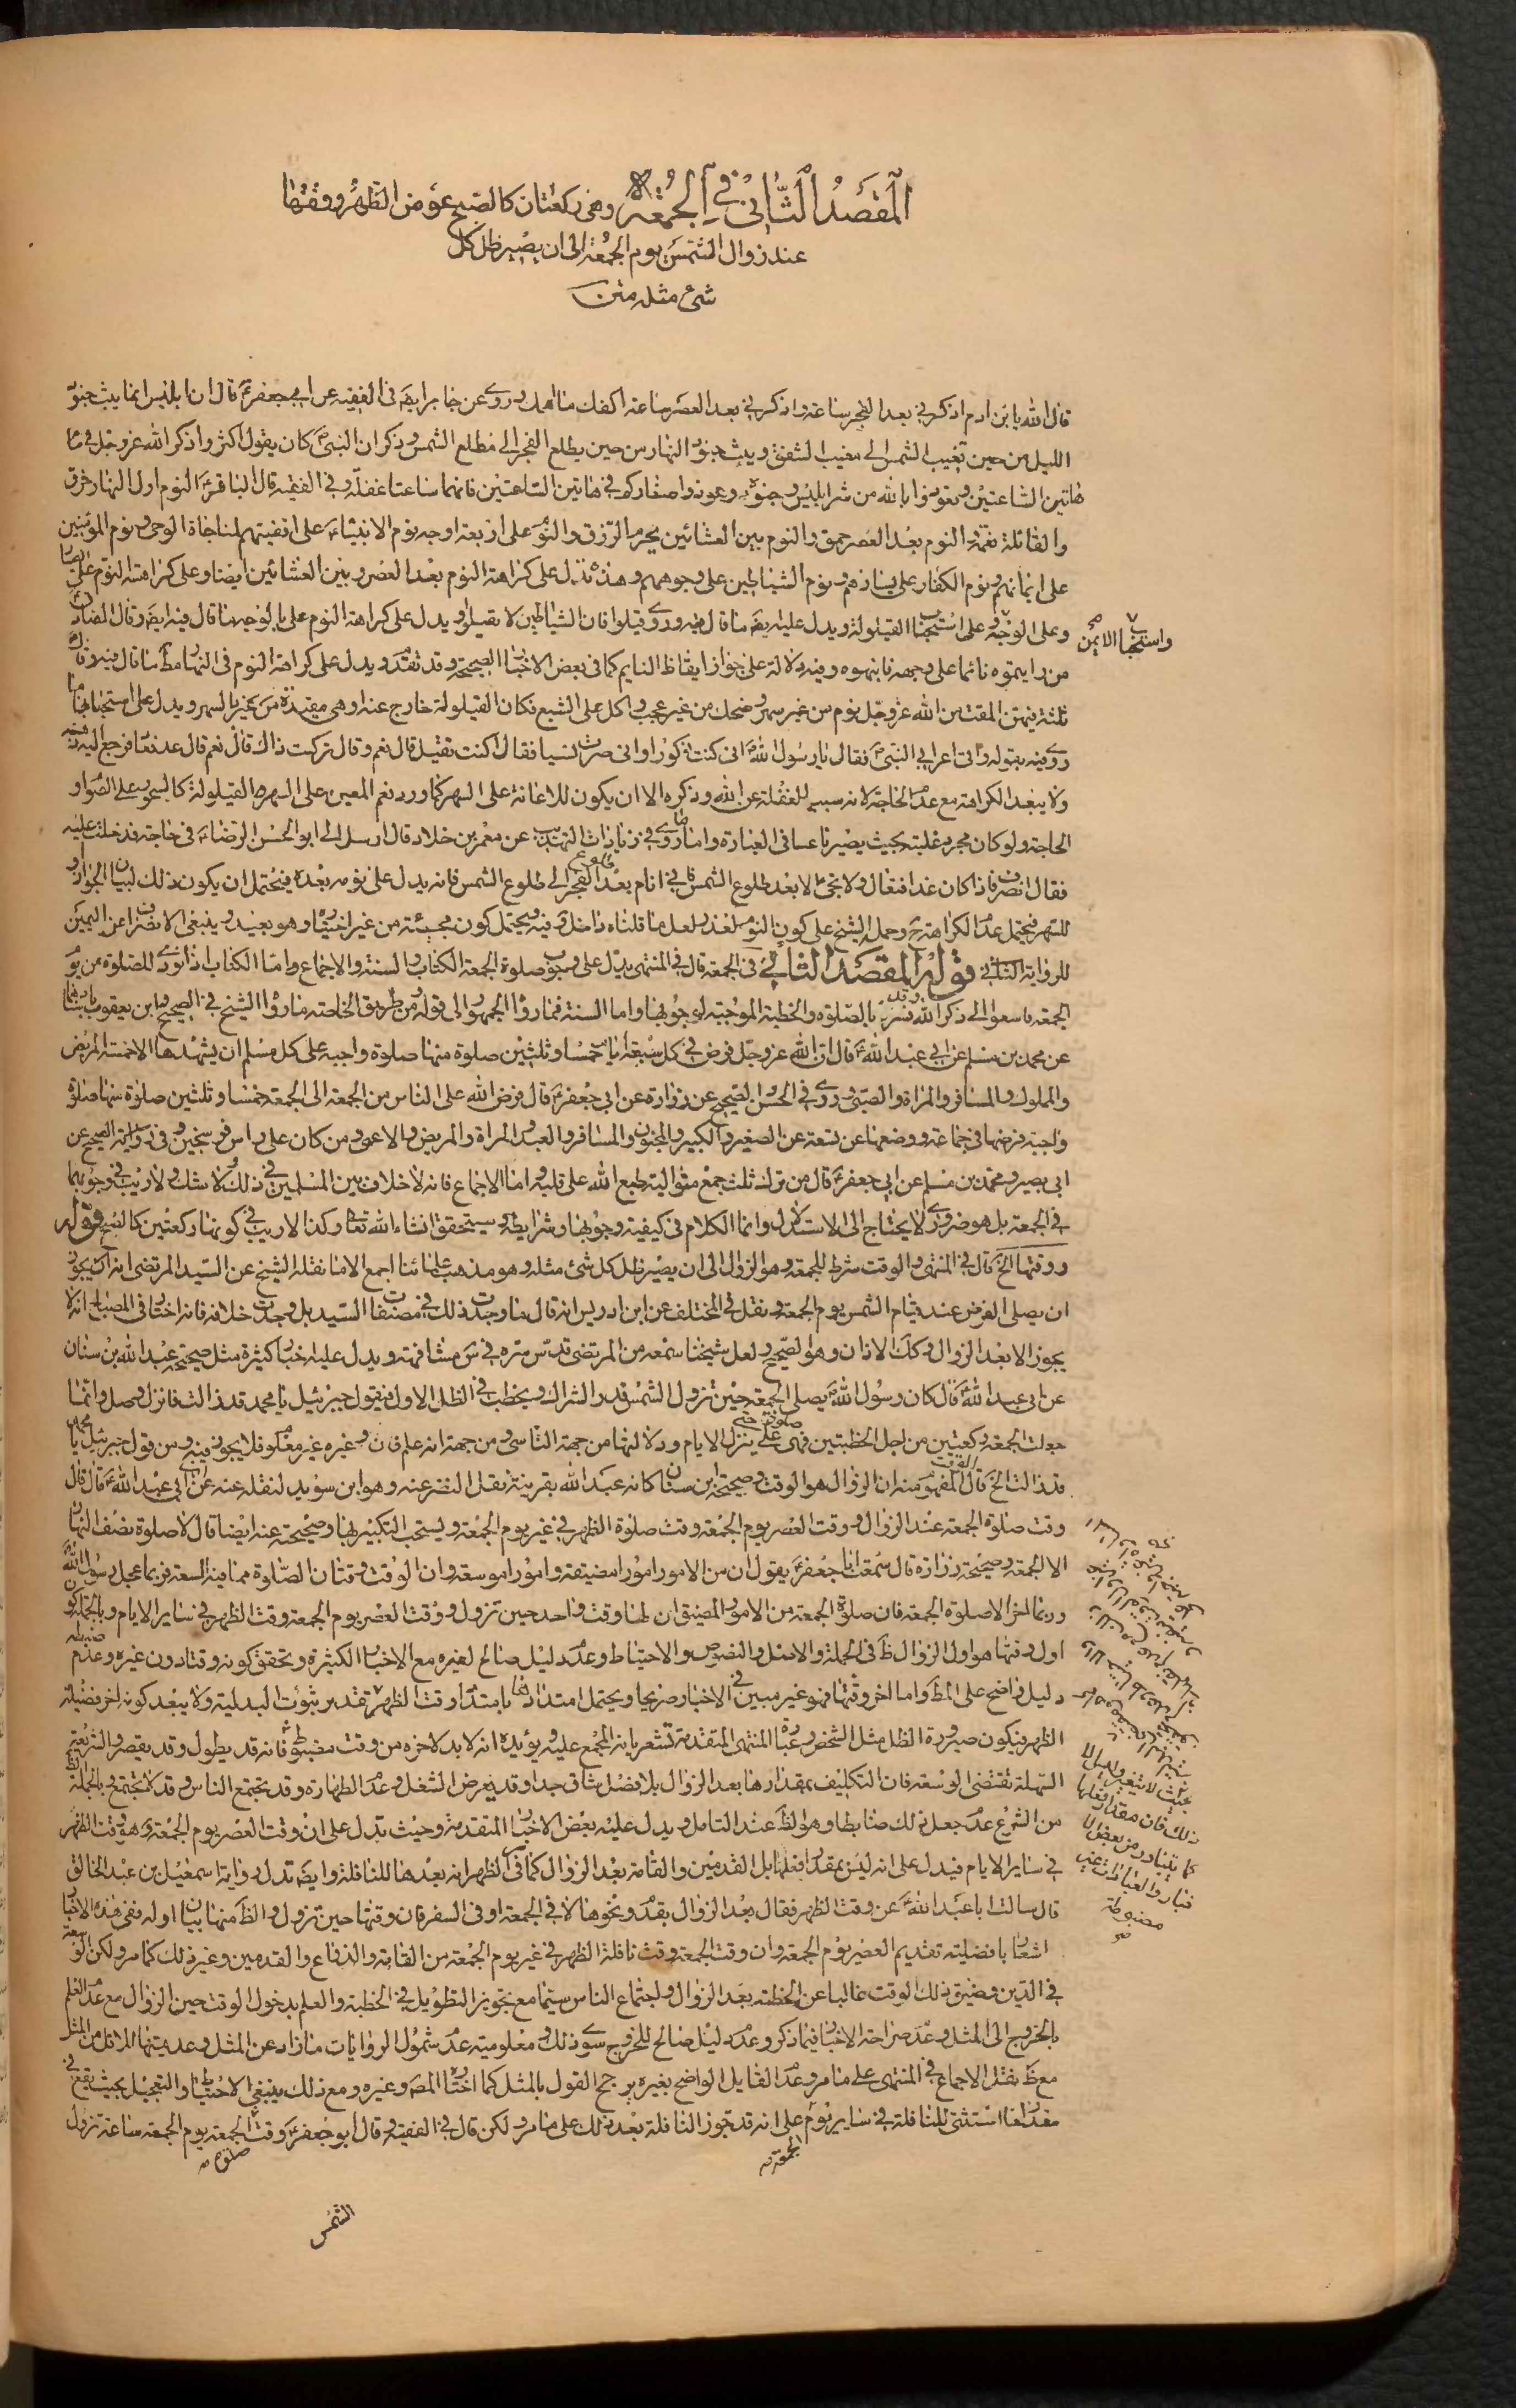 المقصد الثاني في الجمعة وهي ركعتان كالصبح عوض الظهر ووقتها
عند زوال الشمس يوم الجمعة الى ان يصير ظل كل
شيء مثله متن
قال الله يا بن ادم اذكرني بعد الفجر ساعة واذكرني بعد العصر ساعة اكفك ما اهمك وروى عن جابر ايضا في الفقيه عن ابي جعفرؑ قال ان ابليس انما يبث جنود
الليل من حين تغيب الشمس الى مغيب الشفق ويبث جنود النهار من حين يطلع الفجر الى مطلع الشمس وذكر ان النبيؐ كان يقول اكثروا ذكر الله عز وجل في
هاتين الساعتين وتعوذوا بالله من شر ابليس وجنوده وعوذوا صغاركم في هاتين الساعتين فانهما ساعتا غفلة وفي الفقيه قال الباقرؑ النوم اول النهار خرق
والقائلة نعمة والنوم بعد العصر حمق والنوم بين العشائين يحرم الرزق والنوم على اربعة اوجه نوم الانبياءؑ على اقفيتهم لمناجاة الوحى ونوم المؤمنين
على ايمانهم ونوم الكفار على يسارهم ونوم الشياطين على وجوههم وهذه تدل على كراهة النوم بعد العصر وبين العشائين ايضا وعلى كراهة النوم على
وعلى الوجه وعلى استحباب القيلولة ويدل عليه ايضا ما قال فيه وروى قيلوا فان الشياطين لا تقيل ويدل على كراهة النوم على الوجه ما قال فيه ايضا وقال الصادقؑ
واستحباب الايمن صح
من رايتموه نائما على وجهه فانبهوه وفيه دلالة على جواز ايقاظ النايم كما في بعض الاخبار الصحيحة وقد تقدم ويدل على كراهة النوم في النهار مط ما قال فيه وقال
ثلثة فيهن المقت من الله عز وجل نوم من غير سهر وضحك من غير عجب واكل على الشبع فكان القيلولة خارج عنه او هي مقيدة
روى فيه بقوله واتى اعرابي النبيؐ فقال يا رسول اللهؐ اني كنت ذكورا واني صرت نسيا فقال اكنت تقيل قال نعم وقال تركت ذاك قال نعم قال عد فعاد فرجع اليه ذهنه
ولا يبعد الكراهة مع عدم الحاجة لانه سبب للغفلة عن الله وذكره الا ان يكون للاعانة على السهر كما ورد نعم المعين على السهر القيلولة كالسحور على الصوم او
الحاجة ولو كان مجرد غلبته بحيث يصير ناعسا في العبادة واما ما روى في زيادات التهذيب عن معمر بن خلاد قال ارسل الى ابو الحسن الرضاؑ في حاجة فدخلت عليه
فقال انصرف فاذا كان غدا فتعال ولا تجيء الا بعد طلوع الشمس فاني انام بعد الفجر الى طلوع الشمس فانه يدل على نومه بعده فيحتمل ان يكون ذلك لبيان الجواز او
للسهر فيحتمل عدم الكراهة ح وحمل الشيخ على كون النوم لعذر ولعل ما قلناه داخل فيه ويحتمل كون مجيئه من غير اختيار وهو بعيد وينبغي الانصراف عن اليمين
للرواية الثانى قوله المقصد الثاني في الجمعة قال في المنتهى يدل على وجوب صلوة الجمعة الكتاب والسنة والاجماع واما الكتاب اذا نودى للصلوة من يوم
الجمعة فاسعوا الى ذكر الله وفسر بالصلوة والخطبة الموجبة لوجوبها واما السنة فما رواه الجمهور الى قوله ومن طريق الخاصة ما رواه الشيخ في الصحيح وابن يعقوب
عن محمد بن مسلم عن ابي عبد اللهؑ قال ان الله عز وجل فرض في كل سبعة ايام خمسا وثلثين صلوة منها صلوة واجبة على كل مسلم ان يشهدها الا خمسة المريض
والمملوك والمسافر والمراة والصبي وروى في الحسن الصحيح عن زرارة عن ابي جعفرؑ قال فرض الله على الناس من الجمعة الى الجمعة خمسا وثلثين صلوة منها صلوة
واجبة فرضها في جماعة ووضعها عن تسعة عن الصغير والكبير والمجنون والمسافر والعبد والمراة والمريض والاعمى ومن كان على راس فرسخين وفي رواية الصحيح عن
ابي بصير ومحمد بن مسلم عن ابي جعفرؑ قال من ترك ثلث جمع متوالية طبع الله على قلبه واما الاجماع فانه لا خلاف بين المسلمين في ذلك ولا شك ولا ريب في وجوبها
في الجمعة بل هو ضروري لا يحتاج الى الاستدلال وانما الكلام في كيفية وجوبها وشرايطه وسيتحقق انشاء الله تعالى وكذا لا ريب في كونها ركعتين كالصبح قوله
ووقتها الخ قال في المنتهى والوقت شرط للجمعة وهو الزوال الى ان يصير ظل كل شئ مثله وهو مذهب علمائنا اجمع الا ما نقله الشيخ عن السيد المرتضى انه قال يجوز
ان يصلى الفرض عند قيام الشمس يوم الجمعة ونقل في المختلف عن ابن ادريس انه قال ما وجدت ذلك في مصنفات السيد بل وجدت خلافه فانه اختار في المصباح انه لا
يجوز الا بعد الزوال وكك الاذان وهو الصحيح ولعل شيخنا سمعه من المرتضى قدس سره في س مشافهة ويدل عليه اخبار كثيرة مثل صحيحة عبد الله بن سنان
عن ابي عبد اللهؑ قال كان رسول اللهؐ يصلى الجمعة حين تزول الشمس قدر الشراك ويخطب في الظل الاول فيقول جبرئيل يا محمد قد زالت فانزل وصل وانما
جعلت الجمعة ركعتين من اجل الخطبتين فهى صلوة حتى ينزل الامام
قد زالت الخ قال المفهوم منه ان الزوال هو الوقت وصحيحة ابن سنان كانه عبد الله بقرينة نقل النضر عنه وهو ابن سويد لنقله عنه عن ابي عبد اللهؑ قال قال
وقت صلوة الجمعة عند الزوال ووقت العصر يوم الجمعة وقت صلوة الظهر في غير يوم الجمعة ويستحب التكبير بها وصحيحة عنه ايضا قال لا صلوة نصف النهار
الا الجمعة وصحيحة زرارة قال سمعت ابا جعفرؑ يقول ان من الامور امورا مضيقة وامورا موسعة وان الوقت وقتان الصلوة مما فيه السعة فربما عجل رسول اللهؐ
وربما اخر الا صلوة الجمعة فان صلوة الجمعة من الامور المضيق ان لها وقت واحد حين تزول ووقت العصر يوم الجمعة وقت الظهر في ساير الايام وبالجملة كون
اول وقتها هو اول الزوال ظ في الجملة والاصل والنصوص والاحتياط وعدم دليل صالح لغيره مع الاخبار الكثيرة وتحقق كونه وقتا دون غيره وعدم
دليل واضح على المط واما اخر وقتها فهو غير مبين في الاخبار صريحا ويحتمل امتداد وقتها بامتداد وقت الظهر بتقدير ثبوت البدلية ولا يبعد كونه اخر فضيلة
الظهر فيكون صيرورة الظل مثل الشخص وعبارة المنتهى المتقدمة تشعر بانه المجمع عليه ويؤيده انه لا بد لاخره من وقت مضبوط فانه قد يطول وقد يقصر والشريعة
السهلة تقتضى الوسعة فان التكليف بمقدارها بعد الزوال بلا فصل شاق جدا وقد يعرض الشغل وعدم الطهارة وقد يجتمع الناس وقد لا يجتمع وبالجملة
من الشرع عدم جعل ذلك ضابطا وهو الظ عند التامل ويدل عليه بعض الاخبار المتقدمة وحيث تدل على ان وقت العصر يوم الجمعة هو وقت الظهر
في ساير الايام فيدل على انه ليس بمقدار فعلها بل القدمين والقامة بعد الزوال كما في الظهر انه بعدها للنافلة وايضا تدل رواية اسمعيل بن عبد الخالق
قال سالت ابا عبد اللهؑ عن وقت الظهر فقال بعد الزوال بقدم ونحوها الا في الجمعة او في السفر فان وقتها حين تزول والظ منها بيان اوله ففى هذه الاخبار
اشعار بافضلية تقديم العصر يوم الجمعة وان وقت الجمعة وقت نافلة الظهر في غير يوم الجمعة من القامة والذراع والقدمين وغير ذلك كما مر ولكن الوسعة
في الدين وضيق ذلك الوقت غالبا عن الخطبة بعد الزوال واجتماع الناس سيما مع تجويز التطويل في الخطبة والعلم بدخول الوقت حين الزوال مع عدم العلم
بالخروج الى المثل وعدم صراحة الاخبار فيما ذكر وعدم دليل صالح للخروج سوى ذلك ومعلومية عدم شمول الروايات ما زاد عن المثل وعدميتها لاقل من المثل
مع ظ نقل الاجماع في المنتهى على ما مر وعدم القايل الواضح بغيره يرجح القول بالمثل كما اختاره المصنف وغيره ومع ذلك ينبغي الاحتياط والتعجيل بحيث يقع في
مقدار ما استثنى للنافلة في ساير يوم على انه قد تجوز النافلة بعد ذلك على ما مر ولكن قال في الفقيه وقال ابو جعفرؑ وقت الجمعة يوم الجمعة ساعة تزول
بحيث لا يتغير
ذلك فان مقدار فعلها
كما يتبادر من بعض
العبارات غير
مضبوطة
صح
الجمعة
صلوة
الشمس